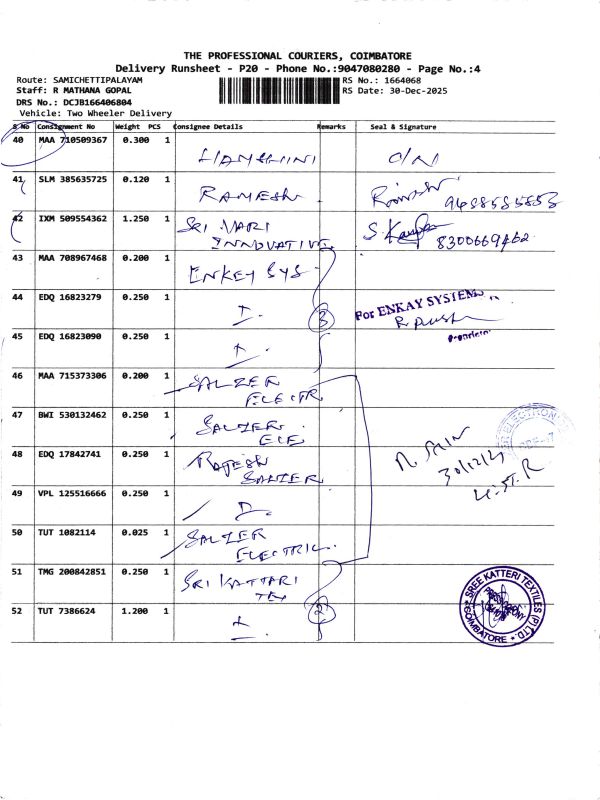 THE PROFESSIONAL COURIERS, COIMBATORE
Delivery Runsheet - P20 - Phone No.:9047080280 - Page No.:4
Route: SAMICHETTIPALAYAM RS No.: 1664068
Staff: R MATHANA GOPAL RS Date: 30-Dec-2025
DRS No.: DCJB166406804
Vehicle: Two Wheeler Delivery
S No Consignment No Weight PCS Consignee Details Remarks Seal & Signature
40 MAA 710509367 0.300 1
41 SLM 385635725 0.120 1 RAMESH
42 IXM 509554362 1.250 1 SRI VARI
INNOVATIVE 8300669462
43 MAA 708967468 0.200 1 ENKEY SYS
44 EDQ 16823279 0.250 1 3 For ENKAY SYSTEMS
45 EDQ 16823090 0.250 1 Proprietor
46 MAA 715373306 0.200 1 SALZER
ELECTR
47 BWI 530132462 0.250 1 SALZER
ELE
48 EDQ 17842741 0.250 1 RAJESH
SALZER
49 VPL 125516666 0.250 1
50 TUT 1082114 0.025 1 SALZER
ELECTRIC
51 TMG 200842851 0.250 1 SRI KATTARI
TEX
52 TUT 7386624 1.200 1 2
SREE KATTERI TEXTILES (P) LTD.
COIMBATORE